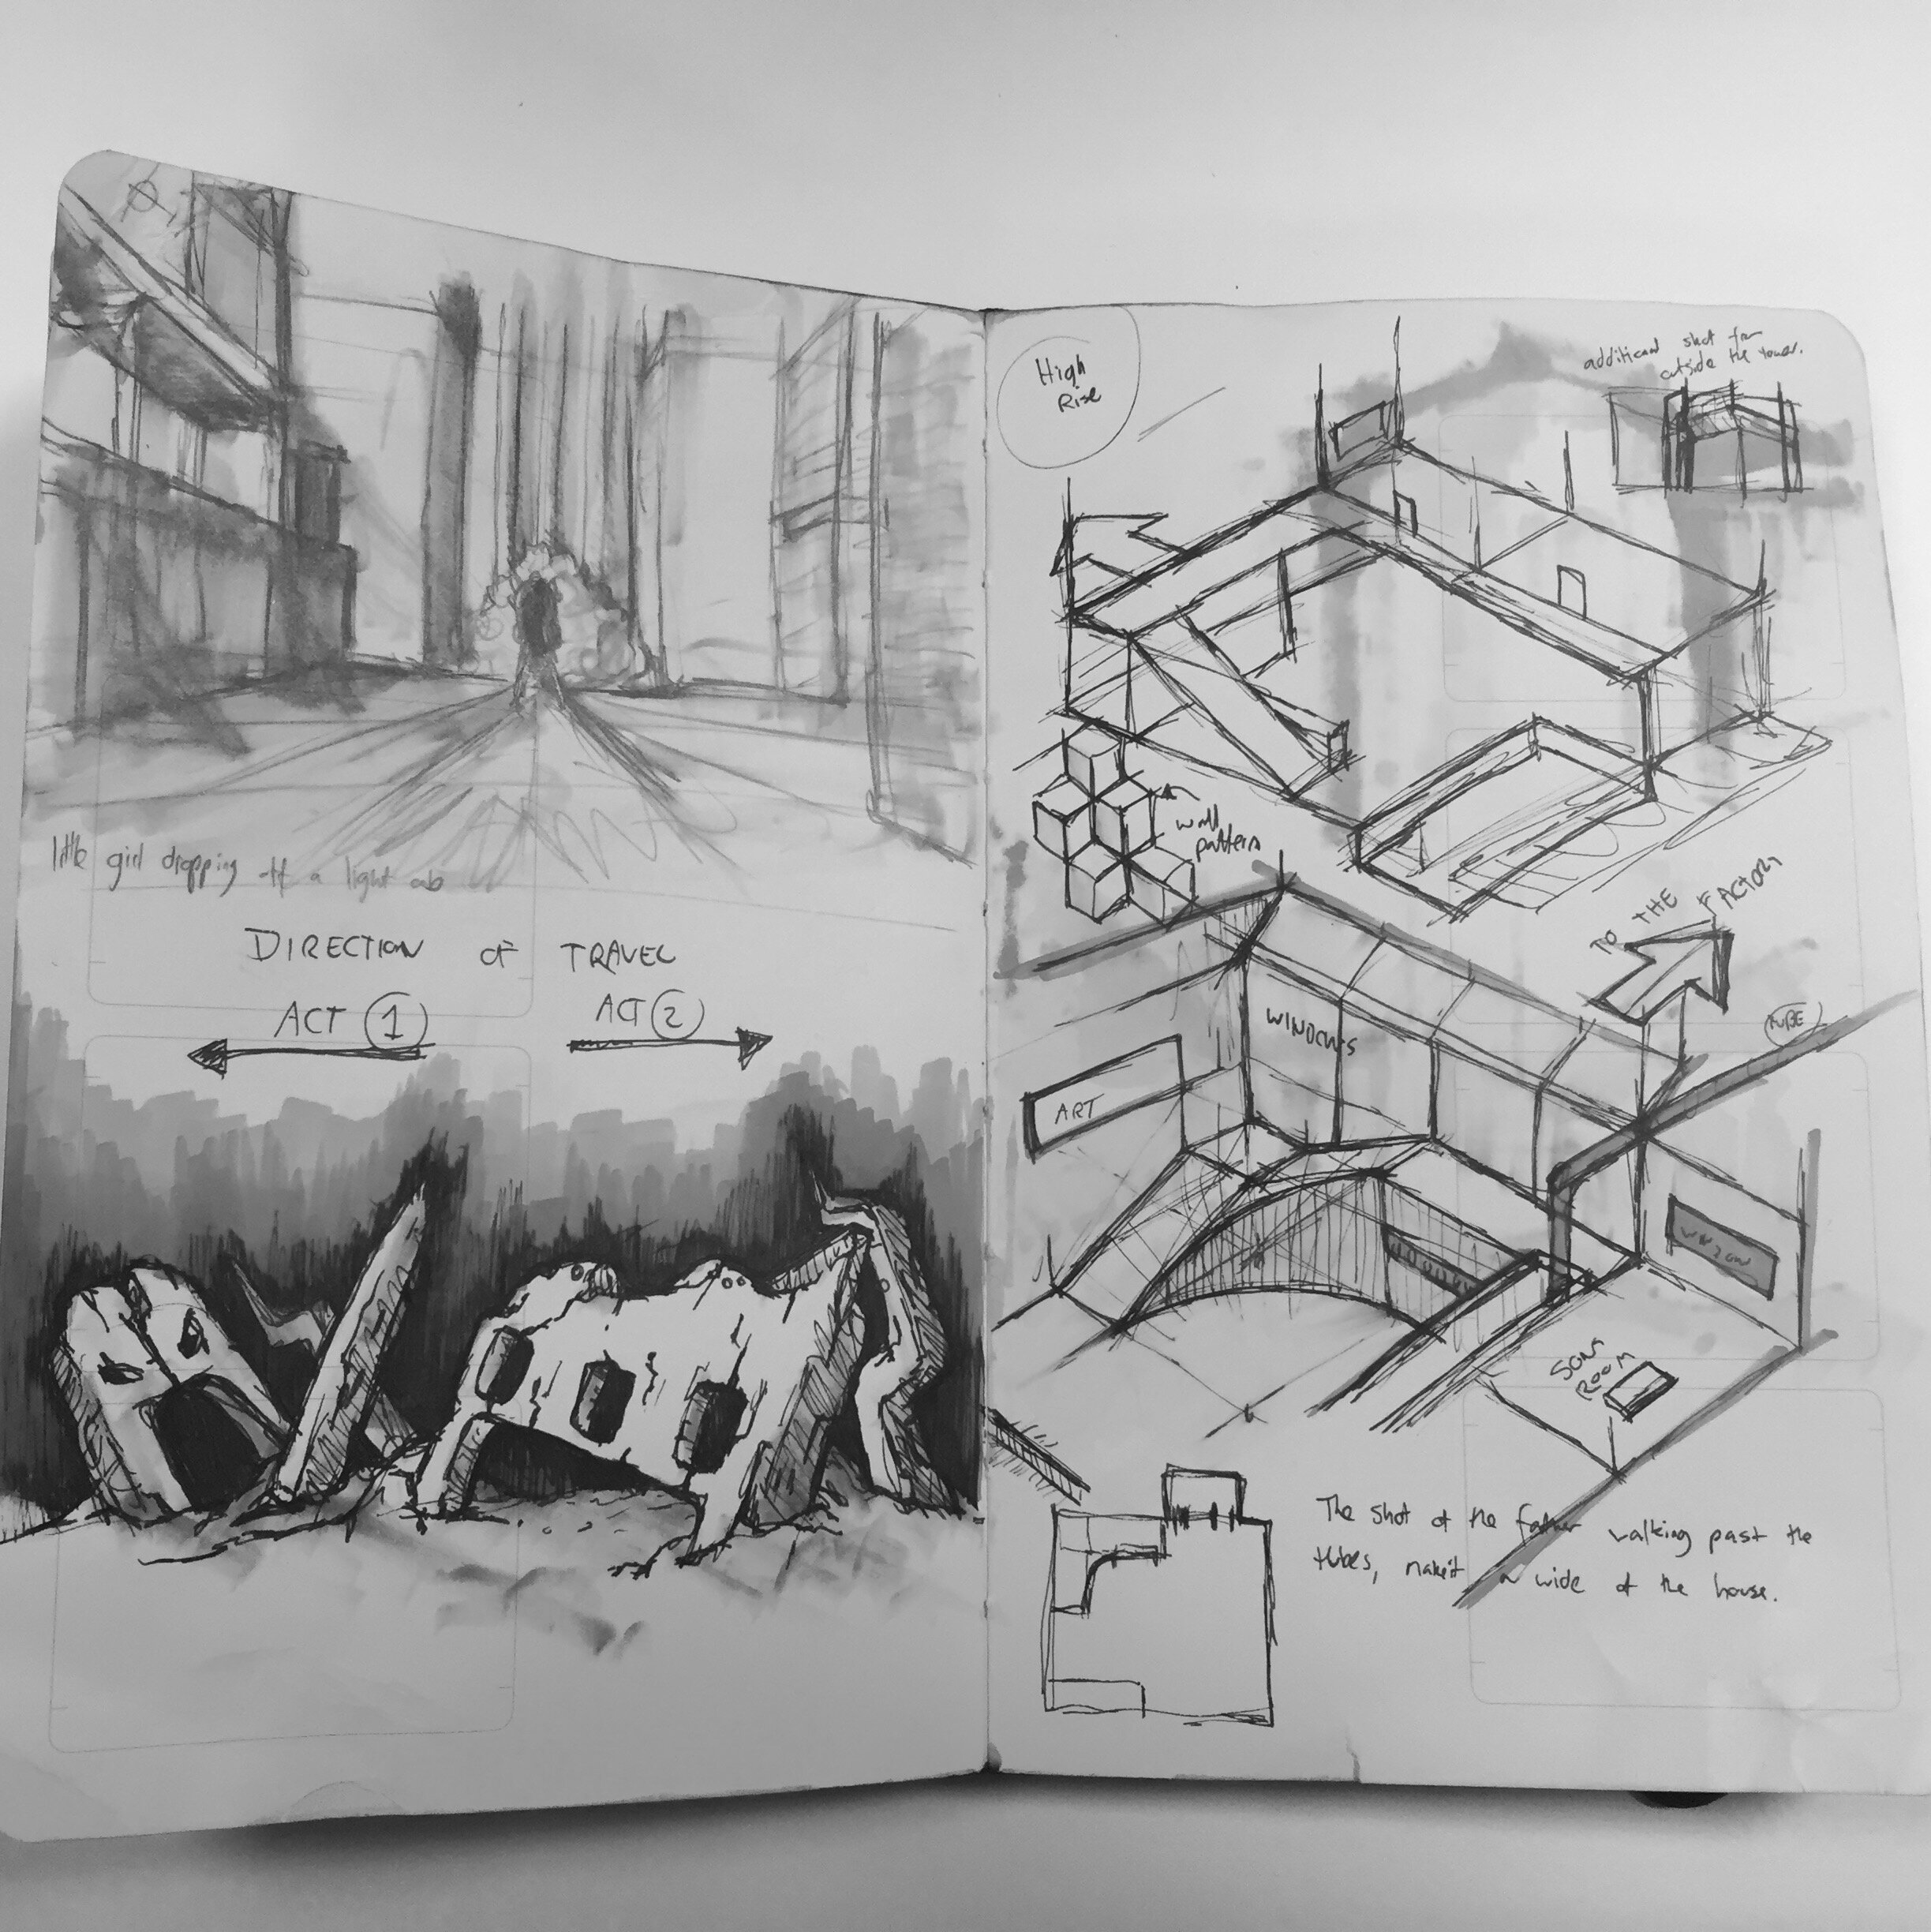 little girl dropping off a light orb
DIRECTION OF TRAVEL
ACT 1
ACT 2
High
Rise
additional shot from
outside the tower.
wall
pattern
TO THE FACTORY
TUBE
WINDOWS
ART
WINDOW
SONS
ROOM
The shot of the father walking past the
tubes, make it a wide of the house.